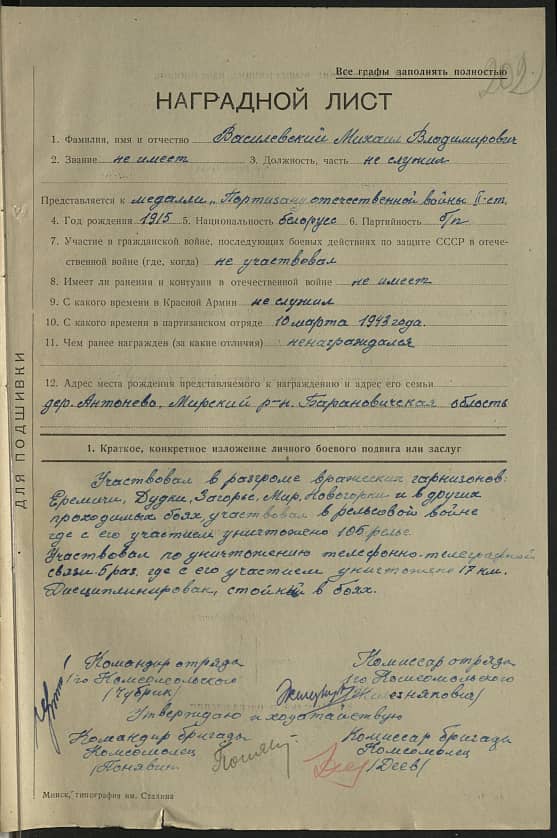 Все графы заполнять полностью
202
НАГРАДНОЙ ЛИСТ
1. Фамилия, имя и отчество Василевский Михаил Владимирович
2. Звание не имеет 3. Должность, часть не служил
Представляется к медалли „Портизану отечественной войны II:ст.
4. Год рождения 1915 5. Национальность белорус 6. Партийность б/п
7. Участие в гражданской войне, последующих боевых действиях по защите СССР в отече-
ственной войне (где, когда) не участвовал
8. Имеет ли ранения и контузии в отечественной войне не имеет
9. С какого времени в Красной Армии не служил
10. С какого времени в партизанском отряде 10 марта 1943 года.
11. Чем ранее награжден (за какие отличия) ненаграждался
12. Адрес места рождения представляемого к награждению и адрес его семьи
дер. Антонево, Мирский р-н. Барановичская область
ДЛЯ ПОДШИВКИ
1. Краткое, конкретное изложение личного боевого подвига или заслуг
Участвовал в разгроме вражеских гарнизонов:
Еремичи, Дудки, Загорье, Мир, Новогорки и в других
проходимых боях, участвовал в рельсовой войне
где с его участием уничтожено 105 рельс.
Участвовал по уничтожению телефонно-телеграфной
связи 5 раз, где с его участием уничтожено 17 км.
Дисциплинирован, стойкий в боях.
Командир отряда Комиссар отряда
1го Комсомольского 1го Комсомольского
/Чубрик/ /Железняковіч/
Утверждаю и ходатайствую
Командир бригады Комиссар бригады
Комсомолец Комсомолец
/Понявин /Деев/
Минск, типография им. Сталина